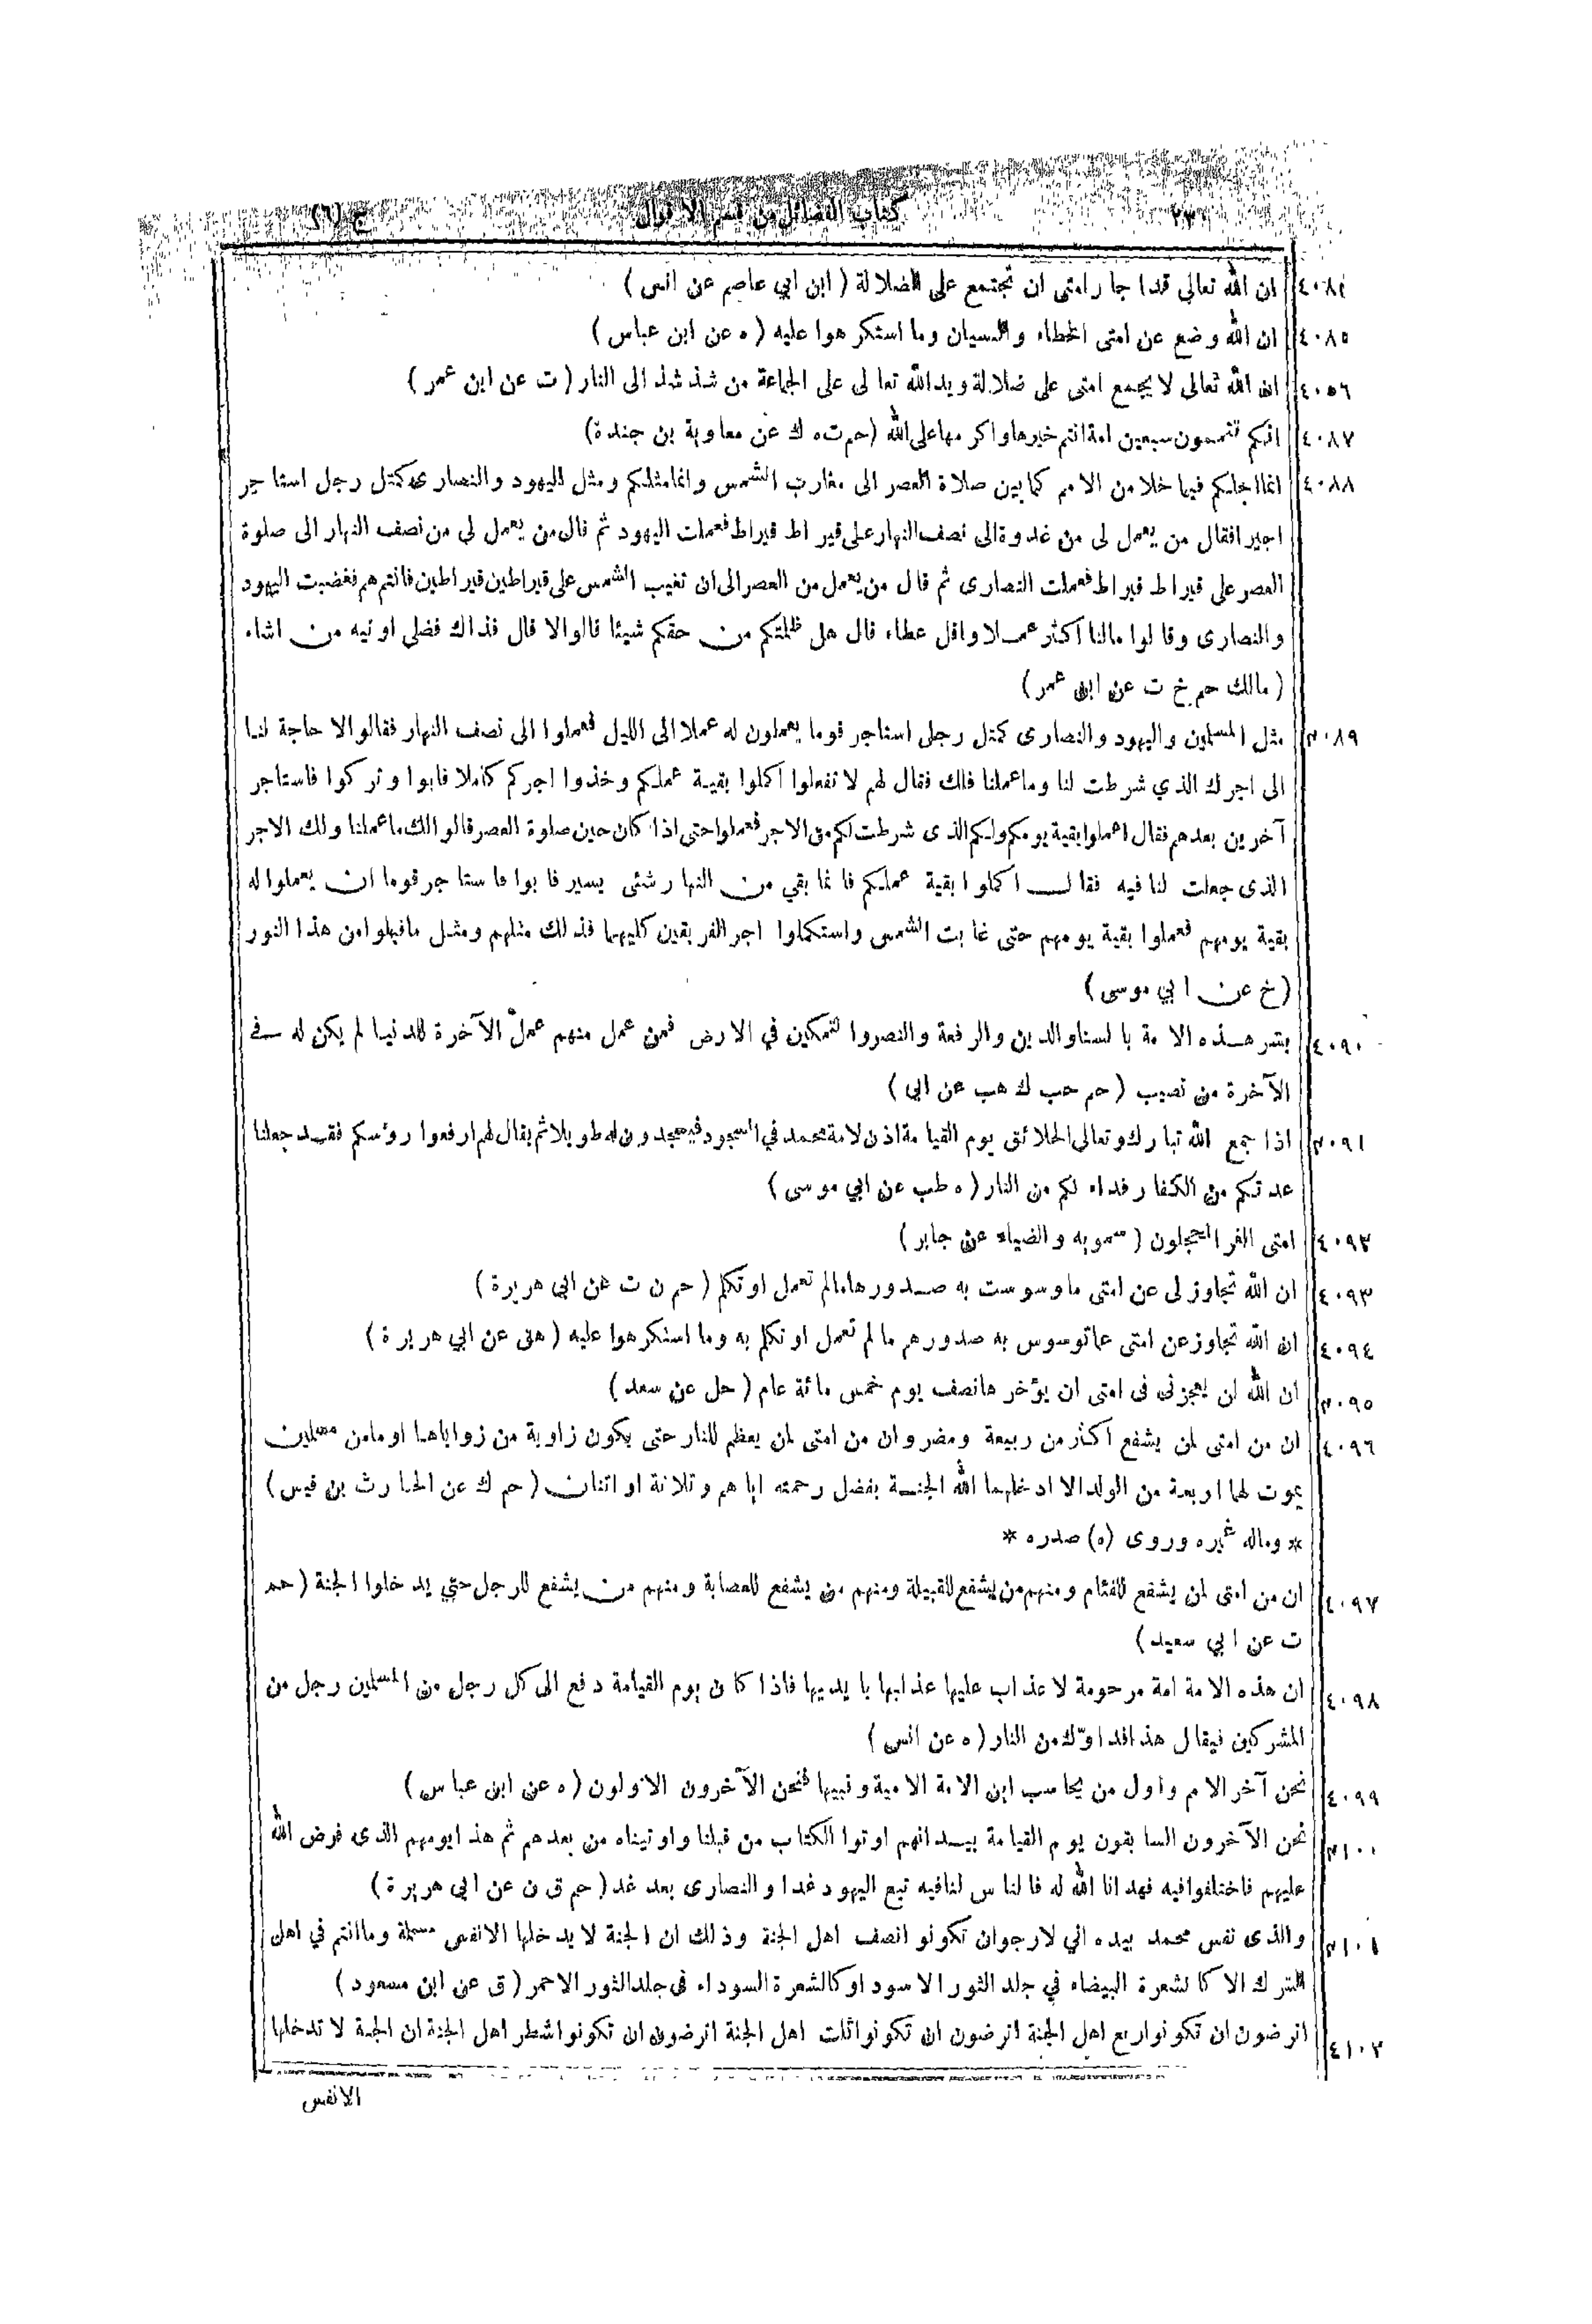 كتاب الفضائل من قسم الاقوال ج (٦)
٤٠٨٤ ان الله تعالى قد اجار امتى ان تجتمع على الضلالة ( ابن ابي عاصم عن انس )
٤٠٨٥ ان الله وضع عن امتى الخطاء والنسيان وما استكرهوا عليه ( ه عن ابن عباس )
٤٠٥٦ ان الله تعالى لا يجمع امتى على ضلالة ويد الله تعالى على الجماعة من شذ شذ الى النار ( ت عن ابن عمر )
٤٠٨٧ انكم تتممون سبعين امة انتم خيرها واكرمها على الله (حم ت ه ك عن معاوية بن جندة)
٤٠٨٨ انما اجلكم فيما خلا من الامم كما بين صلاة العصر الى مغارب الشمس وانما مثلكم ومثل اليهود والنصارى كمثل رجل استاجر
اجيرا فقال من يعمل لى من غدوة الى نصف النهار على قيراط قيراط فعملت اليهود ثم قال من يعمل لى من نصف النهار الى صلوة
العصر على قيراط قيراط فعملت النصارى ثم قال من يعمل من العصر الى ان تغيب الشمس على قيراطين قيراطين فانتم هم فغضبت اليهود
والنصارى وقالوا مالنا اكثر عملا واقل عطاء قال هل ظلمتكم من حقكم شيئا قالوا لا قال فذاك فضلى اوتيه من اشاء
( مالك حم خ ت عن ابن عمر )
٤٠٨٩ مثل المسلمين واليهود والنصارى كمثل رجل استاجر قوما يعملون له عملا الى الليل فعملوا الى نصف النهار فقالوا لا حاجة لنا
الى اجرك الذي شرطت لنا وما عملنا فلك فقال لهم لا تفعلوا اكملوا بقية عملكم وخذوا اجركم كاملا فابوا وتركوا فاستاجر
آخرين بعدهم فقال اعملوا بقية يومكم ولكم الذى شرطت لكم من الاجر فعملوا حتى اذا كان حين صلوة العصر قالوا لك ما عملنا ولك الاجر
الذى جعلت لنا فيه فقال اكملوا بقية عملكم فانما بقي من النهار شئى يسير فابوا فاستاجر قوما ان يعملوا له
بقية يومهم فعملوا بقية يومهم حتى غابت الشمس واستكملوا اجر الفريقين كليهما فذلك مثلهم ومثل ما قبلوا من هذا النور
( خ عن ابي موسى )
٤٠٩٠ بشر هذه الامة بالسنا والدين والرفعة والنصر والتمكين في الارض فمن عمل منهم عمل الآخرة للدنيا لم يكن له في
الآخرة من نصيب ( حم حب ك هب عن ابى )
٤٠٩١ اذا جمع الله تبارك وتعالى الخلائق يوم القيامة اذن لامة محمد في السجود فيسجدون له طويلا ثم يقال لهم ارفعوا رؤسكم فقد جعلنا
عدتكم من الكفار فداء لكم من النار ( ه طب عن ابي موسى )
٤٠٩٢ امتى الغر المحجلون ( سمويه والضياء عن جابر )
٤٠٩٣ ان الله تجاوز لى عن امتى ما وسوست به صدورها مالم تعمل او تكلم ( حم ن ت عن ابى هريرة )
٤٠٩٤ ان الله تجاوز عن امتى عما توسوس به صدورهم مالم تعمل او تكلم به وما استكرهوا عليه ( هق عن ابي هريرة )
٤٠٩٥ ان الله لن يعجزنى فى امتى ان يؤخرها نصف يوم خمس مائة عام ( حل عن سعد )
٤٠٩٦ ان من امتى لمن يشفع اكثر من ربيعة ومضر وان من امتى لمن يعظم للنار حتى يكون زاوية من زواياها وما من مسلمين
يموت لهما اربعة من الولد الا ادخلهما الله الجنة بفضل رحمته اياهم وثلاثة او اثنان ( حم ك عن الحارث بن قيس )
* وماله غيره وروى (ه) صدره *
٤٠٩٧ ان من امتى لمن يشفع للفئام ومنهم من يشفع للقبيلة ومنهم من يشفع للعصابة ومنهم من يشفع للرجل حتي يدخلوا الجنة ( حم
ت عن ابي سعيد )
٤٠٩٨ ان هذه الامة امة مرحومة لا عذاب عليها عذابها بايديها فاذا كان يوم القيامة دفع الى كل رجل من المسلمين رجل من
المشركين فيقال هذا فداؤك من النار ( ه عن انس )
٤٠٩٩ نحن آخر الامم واول من يحاسب اين الامة الامية ونبيها فنحن الآخرون الاولون ( ه عن ابن عباس )
٤١٠٠ نحن الآخرون السابقون يوم القيامة بيد انهم اوتوا الكتاب من قبلنا واوتيناه من بعدهم ثم هذا يومهم الذى فرض الله
عليهم فاختلفوا فيه فهدانا الله له فالناس لنا فيه تبع اليهود غدا والنصارى بعد غد ( حم ق ن عن ابى هريرة )
٤١٠١ والذى نفس محمد بيده اني لارجو ان تكونوا نصف اهل الجنة وذلك ان الجنة لا يدخلها الا نفس مسلمة وما انتم في اهل
الشرك الا كالشعرة البيضاء في جلد الثور الاسود او كالشعرة السوداء فى جلد الثور الاحمر ( ق عن ابن مسعود )
٤١٠٢ اترضون ان تكونوا ربع اهل الجنة اترضون ان تكونوا ثلث اهل الجنة اترضون ان تكونوا شطر اهل الجنة ان الجنة لا تدخلها
الانفس